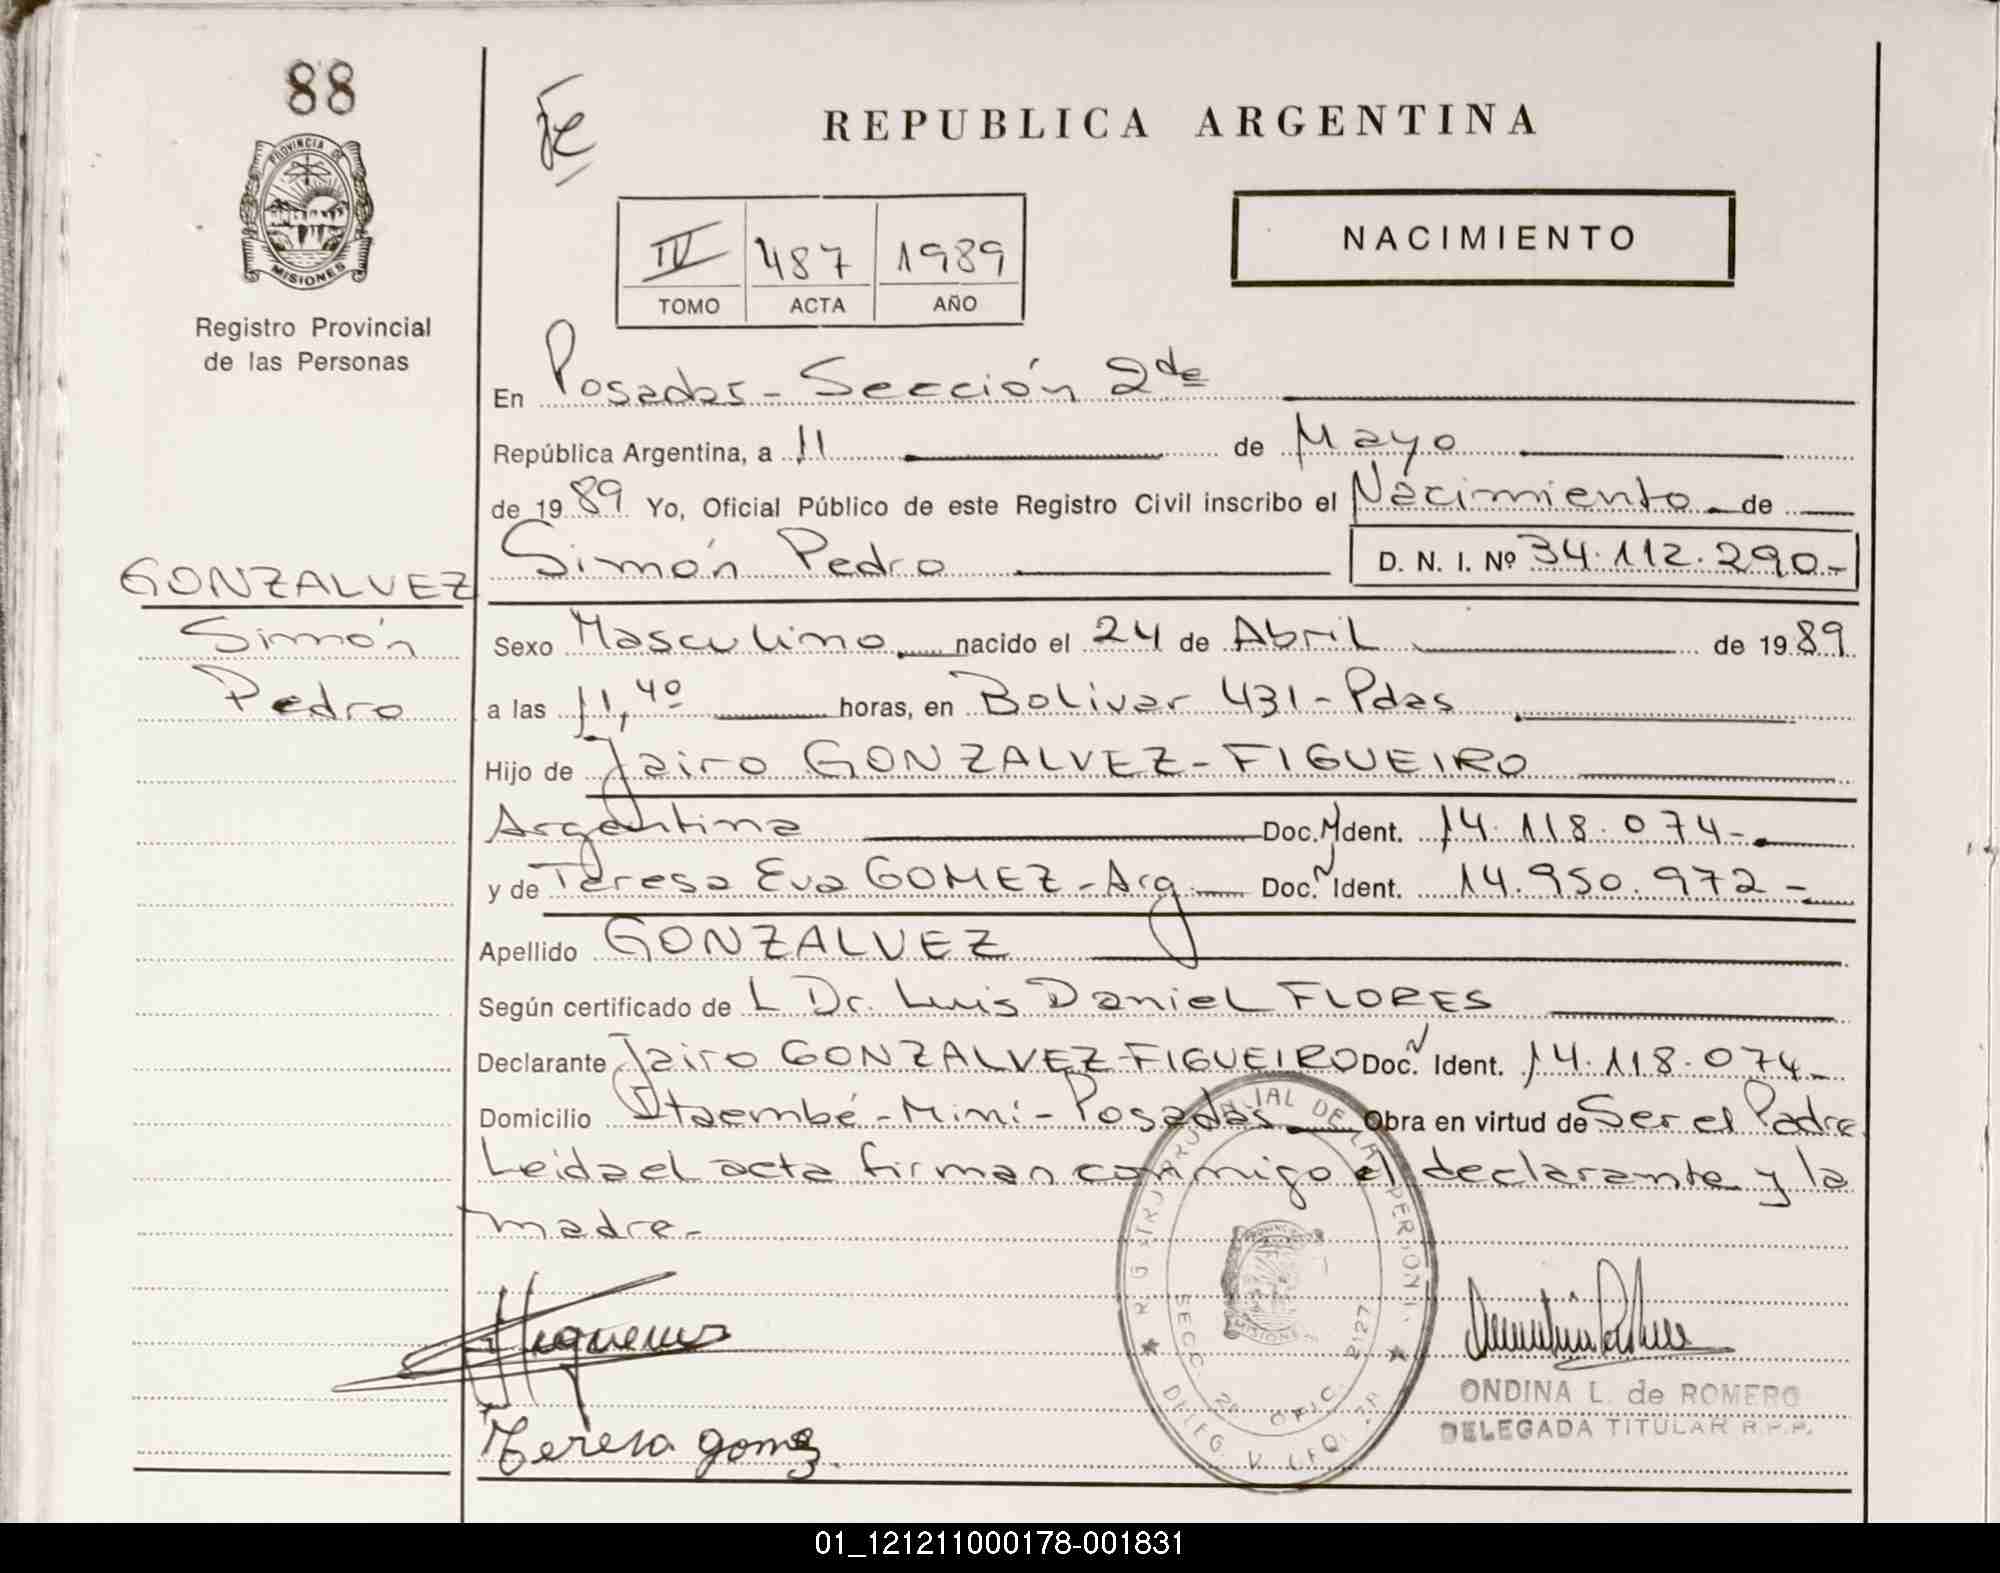 88
PROVINCIA DE
MISIONES
Registro Provincial
de las Personas
REPUBLICA ARGENTINA
IV 487 1989
TOMO ACTA AÑO
NACIMIENTO
En Posadas - Sección 2da
República Argentina, a 11 de Mayo
de 1989 Yo, Oficial Público de este Registro Civil inscribo el Nacimiento de
Simón Pedro D. N. I. Nº 34.112.290.-
GONZALVEZ
Simón
Pedro
Sexo Masculino nacido el 24 de Abril de 1989
a las 11,40 horas, en Bolivar 431 - Pdas
Hijo de Jairo GONZALVEZ - FIGUEIRO
Argentina Doc. N Ident. 14.118.074-
y de Teresa Eva GOMEZ - Arg. Doc. N Ident. 14.950.972-
Apellido GONZALVEZ
Según certificado de L Dr. Luis Daniel FLORES
Declarante Jairo GONZALVEZ-FIGUEIRO Doc. N Ident. 14.118.074-
Domicilio Itaembé-Miní-Posadas Obra en virtud de Ser el Padre
Leida el acta firman conmigo el declarante y la
madre-
Teresa gomez.
MISIONES
SECC. 2127
ONDINA L. de ROMERO
DELEGADA TITULAR R.P.P.
01_121211000178-001831